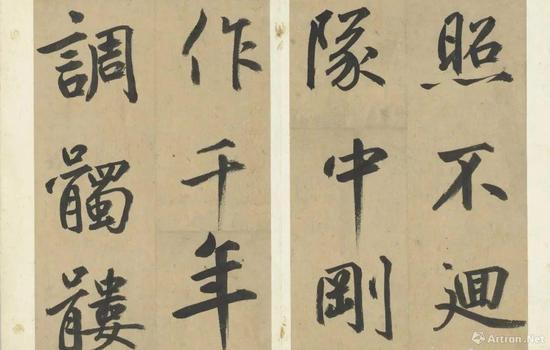 照不迴
隊中剛
作千年
調髑髏
Artron.Net